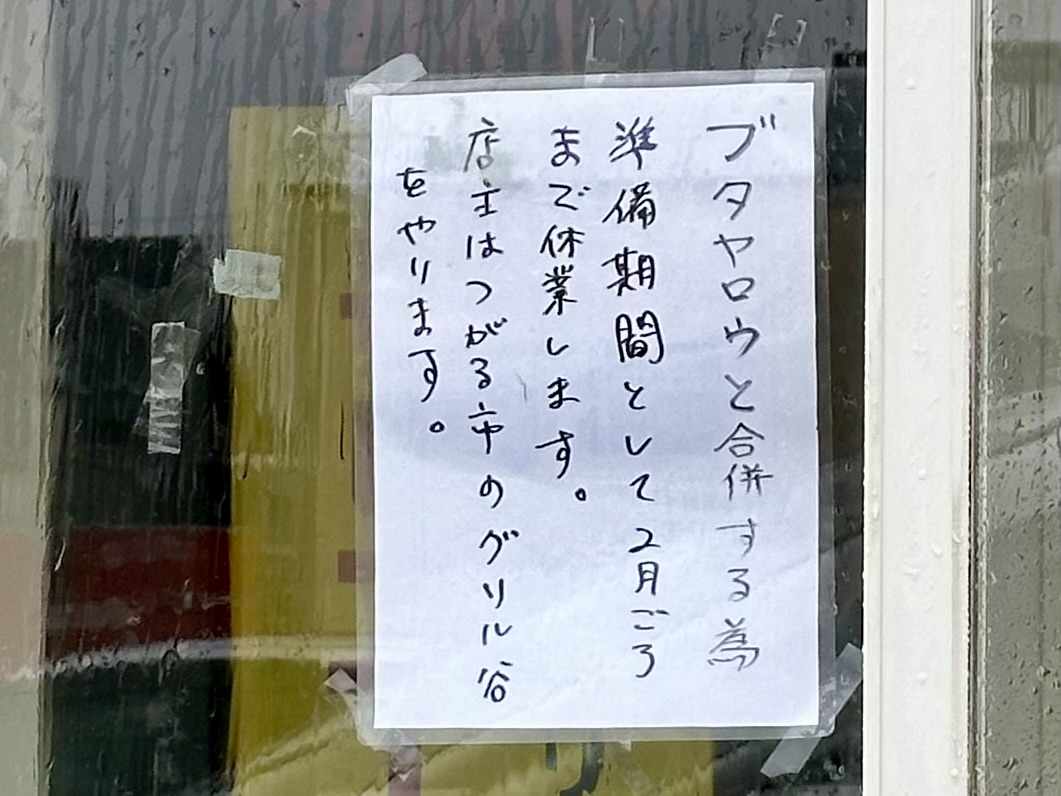 ブタヤロウと合併する為
準備期間として2月ごろ
まで休業します。
店主はつがる市のグリル谷
をやります。